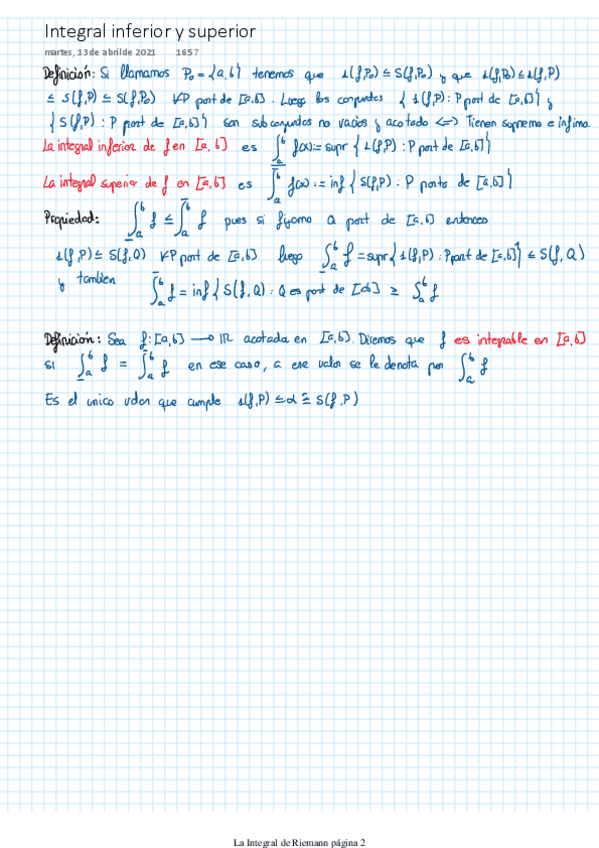 Integral inferior y superior
martes, 13 de abril de 2021 16:57
Definición: Si llamamos P₀ = {a, b} tenemos que s(f,P₀) ≤ S(f,P₀) y que s(f,P₀) ≤ s(f,P)
≤ S(f,P) ≤ S(f,P₀) ∀P part de [a,b]. Luego los conjuntos {s(f,P): P part de [a,b]} y
{S(f,P): P part de [a,b]} son subconjuntos no vacios y acotado <=> Tienen supremo e ínfimo.
La integral inferior de f en [a, b] es ∫_a^b f(x) := supr {s(f,P): P part de [a,b]}
La integral superior de f en [a,b] es ∫_a^b f(x) := inf {S(f,P): P parto de [a,b]}
Propiedad: ∫_a^b f ≤ ∫_a^b f pues si fijamo Q part de [a,b] entonces
s(f,P) ≤ S(f,Q) ∀P part de [a,b] luego ∫_a^b f = supr{s(f,P): P part de [a,b]} ≤ S(f,Q)
y tambien ∫_a^b f = inf {S(f,Q): Q es part de [ab]} ≥ ∫_a^b f
Definición: Sea f: [a,b] → IR acotada en [a,b]. Diremos que f es integrable en [a,b]
si ∫_a^b f = ∫_a^b f en ese caso, a ese valor se le denota por ∫_a^b f
Es el unico valor que cumple s(f,P) ≤ α ≤ S(f,P)
La Integral de Riemann página 2